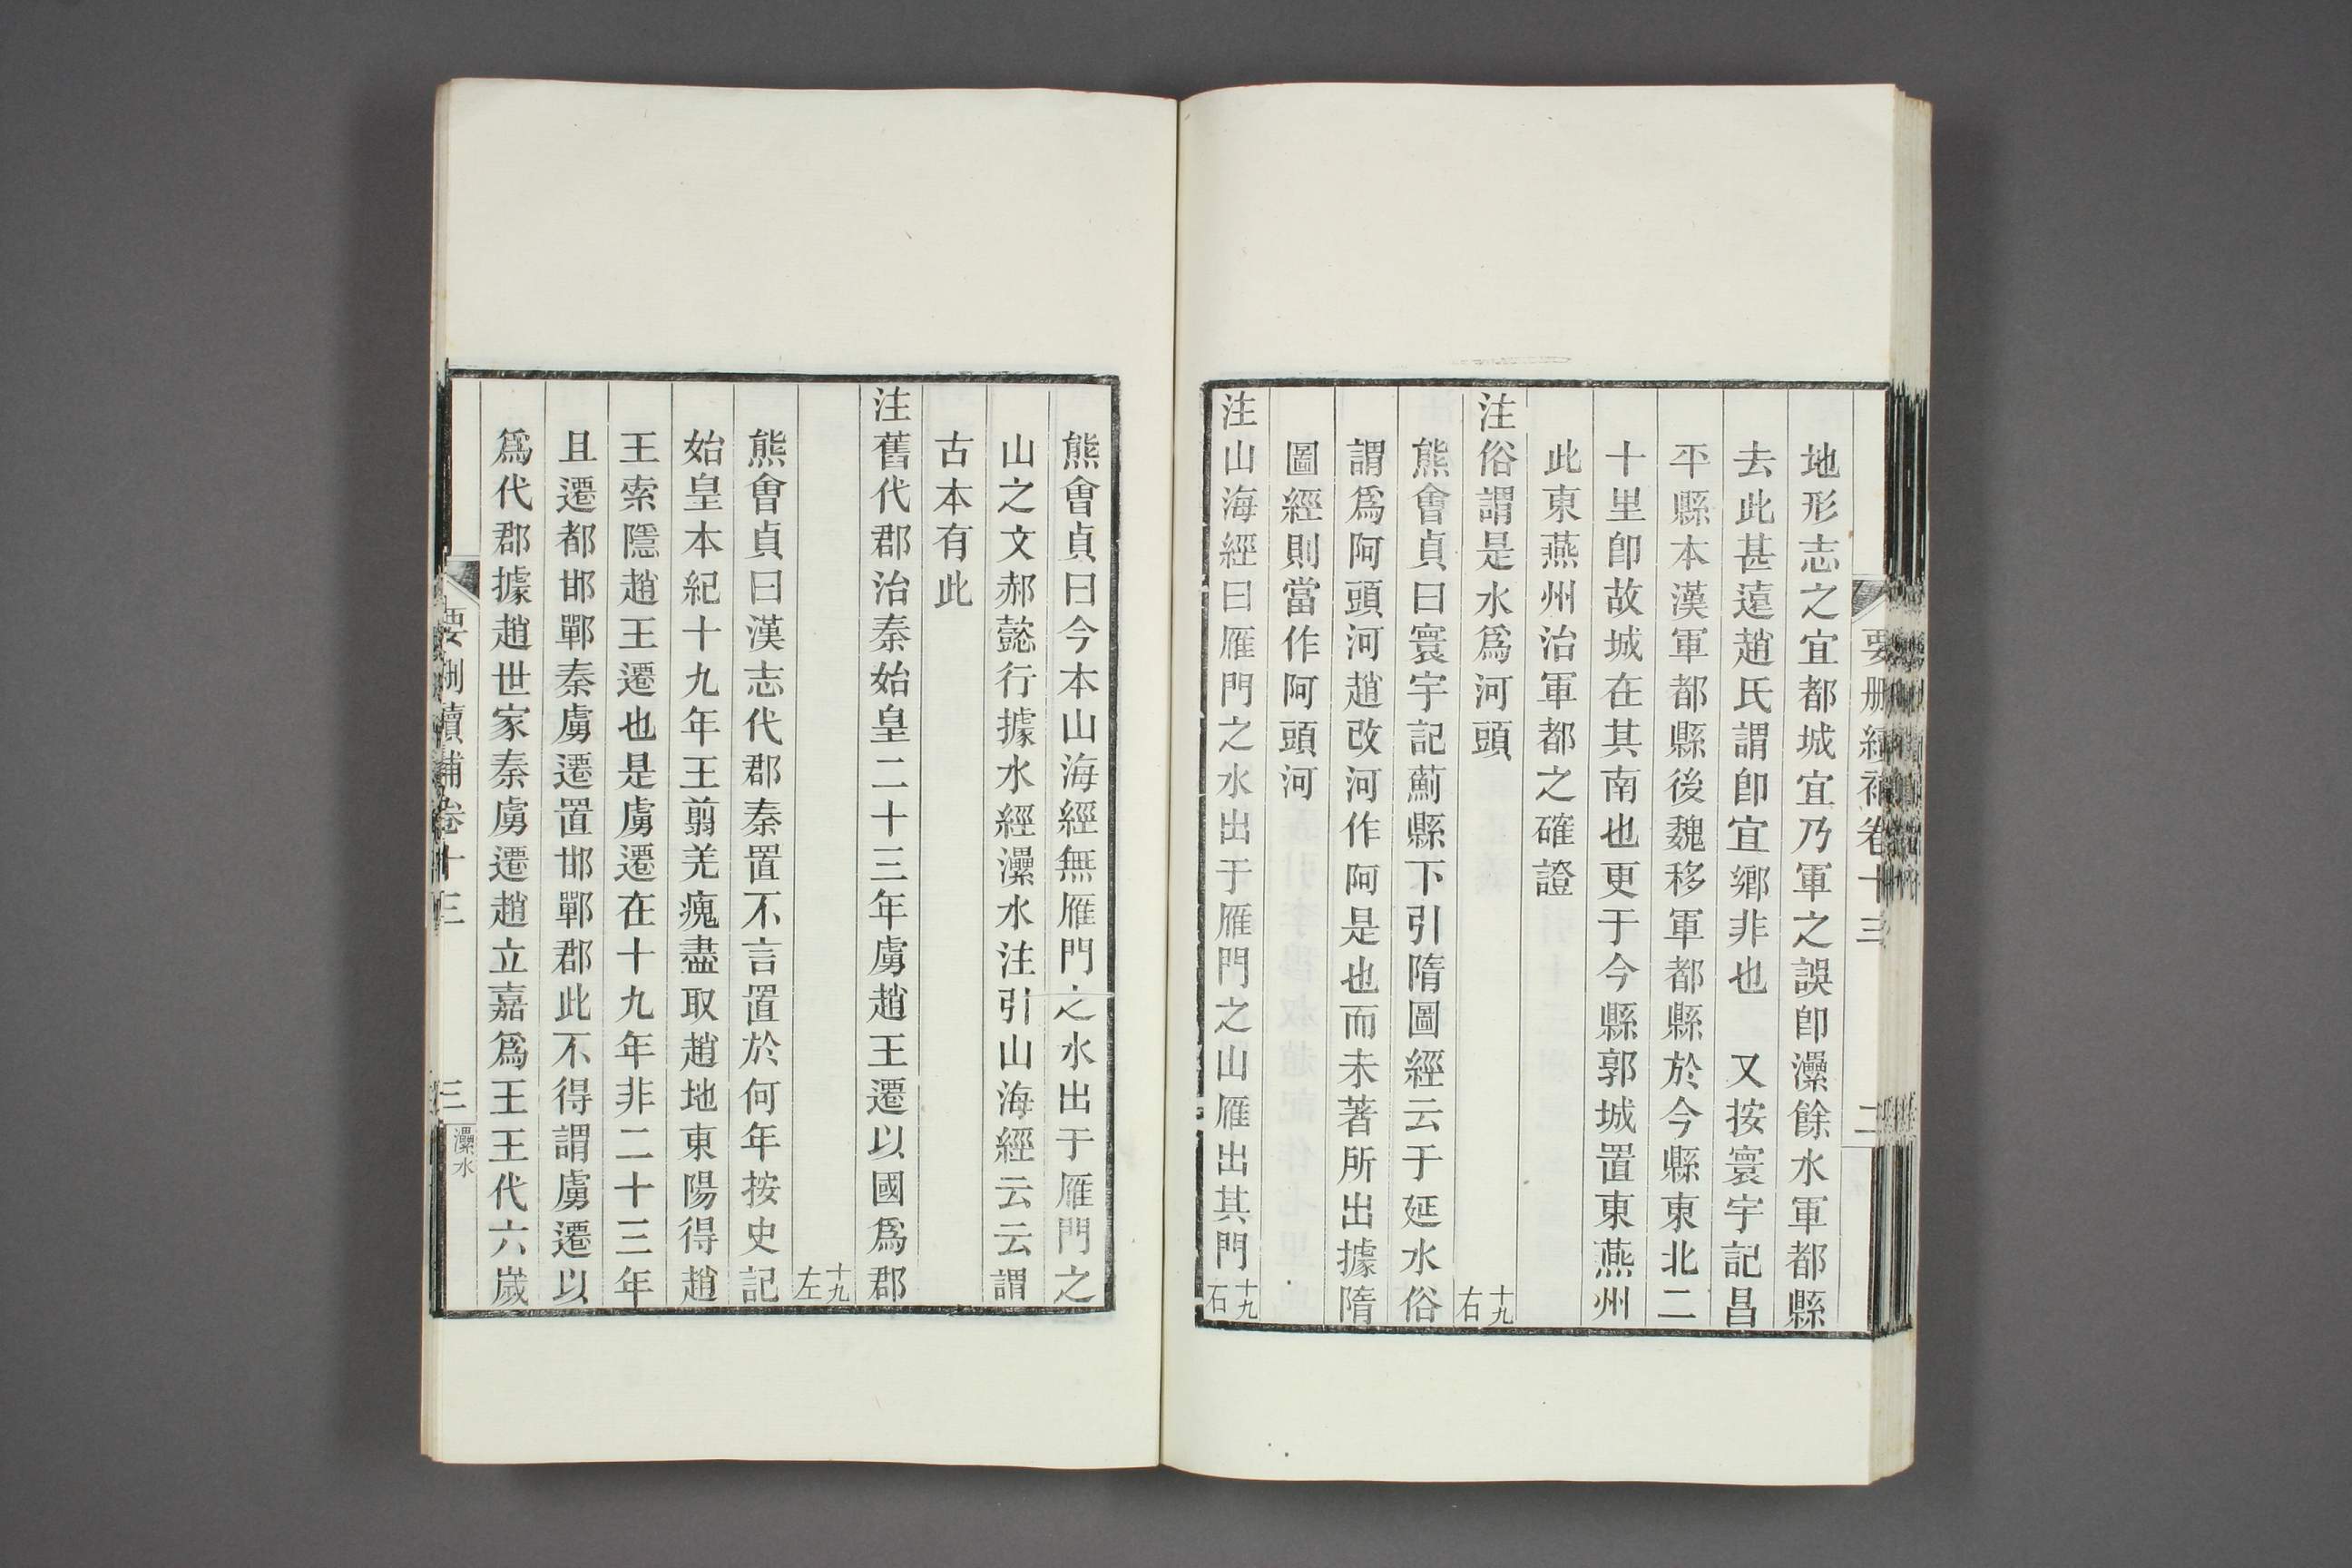 地形志之宜都城宜乃軍之誤卽㶟餘水軍都縣
去此甚遠趙氏謂卽宜鄉非也　又按寰宇記昌
平縣本漢軍都縣後魏移軍都縣於今縣東北二
十里卽故城在其南也更于今縣郭城置東燕州
此東燕州治軍都之確證
注俗謂是水爲河頭　十九右
熊會貞曰寰宇記薊縣下引隋圖經云于延水俗
謂爲阿頭河趙改河作阿是也而未著所出據隋
圖經則當作阿頭河
注山海經曰雁門之水出于雁門之山雁出其門　十九右
熊會貞曰今本山海經無雁門之水出于雁門之
山之文郝懿行據水經㶟水注引山海經云云謂
古本有此
注舊代郡治秦始皇二十三年虜趙王遷以國爲郡
十九左
熊會貞曰漢志代郡秦置不言置於何年按史記
始皇本紀十九年王翦羌瘣盡取趙地東陽得趙
王索隱趙王遷也是虜遷在十九年非二十三年
且遷都邯鄲秦虜遷置邯鄲郡此不得謂虜遷以
爲代郡據趙世家秦虜遷趙立嘉爲王王代六歲
要刪續補卷十三　三　㶟水